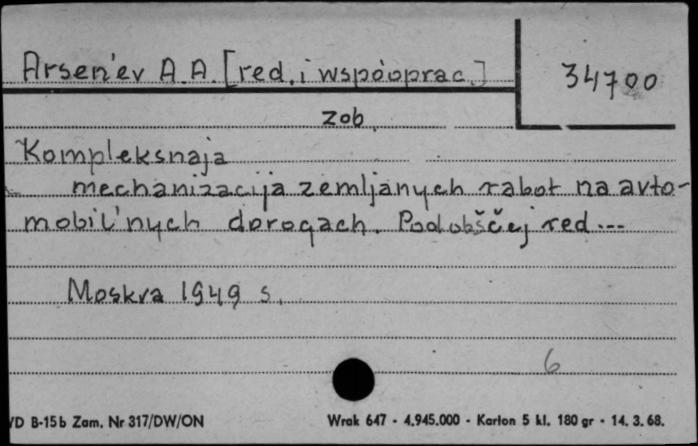 Arsen'ev A.A. [red. i wspóoprac.]
34700
zob.
Kompleksnaja
mechanizacija zemljanych rabot na avto-
mobil'nych dorogach. Pod obščej red...
Moskva 1949 s.
6
VD B-15b Zam. Nr 317/DW/ON
Wrak 647 - 4.945.000 - Karton 5 kl. 180 gr - 14. 3. 68.